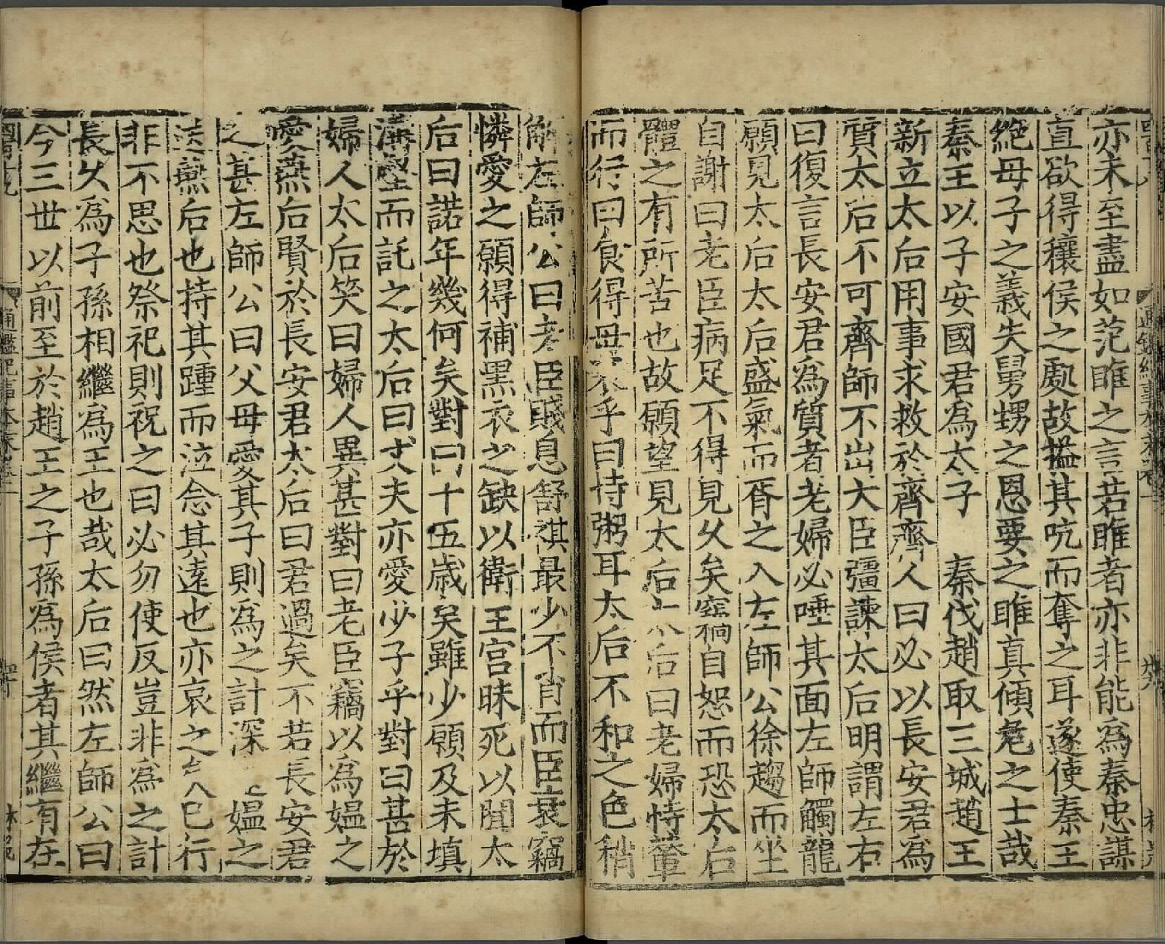 亦未至盡如范睢之言若睢者亦非能為秦忠謀
直欲得穰侯之處故搤其吭而奪之耳遂使秦王
絶母子之義失舅甥之恩要之睢真傾危之士哉
秦王以子安國君為太子　秦伐趙取三城趙王
新立太后用事求救於齊齊人曰必以長安君為
質太后不可齊師不出大臣彊諫太后明謂左右
曰復言長安君為質者老婦必唾其面左師觸龍
願見太后太后盛氣而胥之入左師公徐趨而坐
自謝曰老臣病足不得見久矣竊自恕而恐太后
體之有所苦也故願望見太后太后曰老婦恃輦
而行曰食得毋衰乎曰恃粥耳太后不和之色稍
解左師公曰老臣賤息舒祺最少不肖而臣衰竊
憐愛之願得補黑衣之缺以衛王宮昧死以聞太
后曰諾年幾何矣對曰十五歲矣雖少願及未填
溝壑而託之太后曰丈夫亦愛少子乎對曰甚於
婦人太后笑曰婦人異甚對曰老臣竊以為媼之
愛燕后賢於長安君太后曰君過矣不若長安君
之甚左師公曰父母愛其子則為之計深媼之
送燕后也持其踵而泣念其遠也亦哀之矣已行
非不思也祭祀則祝之曰必勿使反豈非為之計
長久為子孫相繼為王也哉太后曰然左師公曰
今三世以前至於趙王之子孫為侯者其繼有在